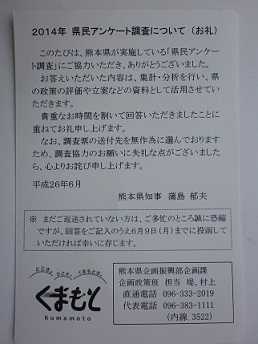 2014年 県民アンケート調査について（お礼）
このたびは、熊本県が実施している「県民アンケー
ト調査」にご協力いただき、ありがとうございました。
お答えいただいた内容は、集計・分析を行い、県
の政策の評価や立案などの資料として活用させてい
ただきます。
貴重なお時間を割いて回答いただきましたことに
重ねてお礼申し上げます。
なお、調査票の送付先を無作為に選んでおります
ため、調査協力のお願いに失礼な点がございました
ら、心よりお詫び申し上げます。
平成26年6月
熊本県知事 蒲島 郁夫
※ まだご返送されていない方は、ご多忙のところ誠に恐縮
ですが、回答をご記入のうえ6月9日（月）までに投函して
いただければ幸いに存じます。
くまもと
Kumamoto
熊本県企画振興部企画課
企画政策班 担当 堤、村上
直通電話 096-333-2019
代表電話 096-383-1111
（内線 3522）